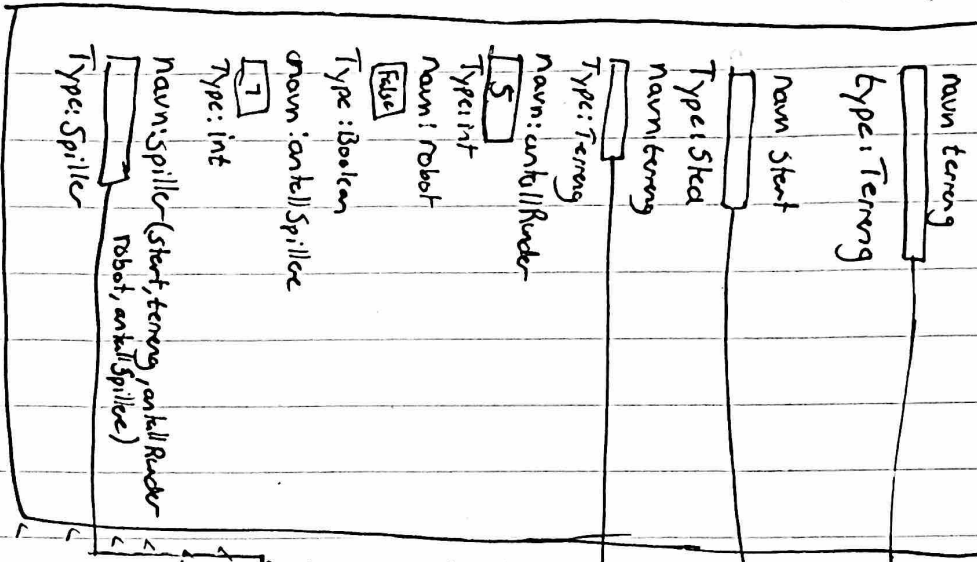 navn terreng
type: Terreng
navn Start
Type: Sted
navn: terreng
Type: Terreng
navn: antallRunder
5
Type: int
navn: robot
False
Type: Boolean
navn: antallSpillere
1
Type: int
navn: Spiller (start, terreng, antallRunder
robot, antallSpillere)
Type: Spiller